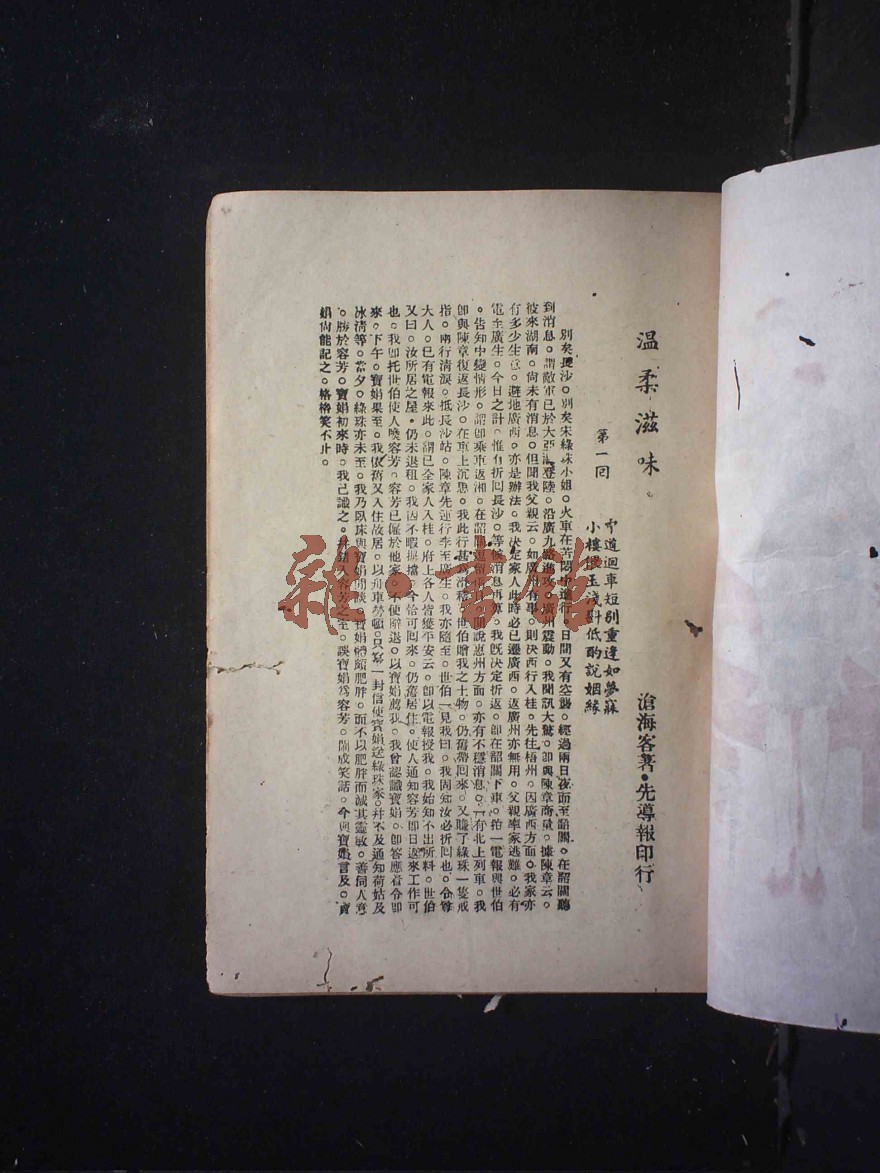 温柔滋味。
滄海客著・先導報印行
第一回
中道迴車短別重逢如夢寐
小樓 玉淺斟低酌說姻緣
別矣長沙。別矣宋綠珠小姐。火車在苦悶中進行。日間又有空襲。經過兩日夜而至韶關。在韶關聽
到消息。謂敵軍已於大亞灣登陸。沿廣九路進攻。廣州震動。我聞訊大驚。卽與陳章商量。據陳章云。
彼來湖南。尙未有消息。但聞我父親云。如廣州有事。則決西行入桂。先住梧州。因廣西方面。我家亦
有多少生意。避地廣西。亦是辦法。我決定家人此時必已遷廣西。返廣州亦無用。父親率家逃難。必有
電至廣生。今日之計。惟有折回長沙。等候消息再算。我旣決定折返。卽在韶關下車。拍一電報與世伯
。告知中變情形。謂卽乘車返湘。在韶關 留 。聞說惠州方面。亦有不穩消息。 有北上列車。我
卽與陳章復返長沙。在車上沉思。我此行甚 滑稽。世伯贈我之土物。仍舊帶回來。又賺了綠珠一隻戒
指。兩行清淚。抵長沙站。陳章先運行李至廣生。我亦隨至。世伯一見我曰。我固知汝必折回也。令尊
大人。已有電報來此。謂已全家人入桂。府上各人皆獲平安云。卽以電報授我。我始知不出所料。世伯
又曰。汝所居之屋。仍未退租。我因不暇 擋。今恰可回來。仍舊居住。使人通知容芳卽日返來工作可
也。我卽托世伯使人喚容芳。容芳已僱於他家。不便辭退。以寶娟薦我。我曾認識寶娟。卽答應着令卽
來。下午。寶娟果至。我依舊又入住故居。以舟車勞頓。只寫一封信使寶娟送綠珠家。幷不及通知荷姑及
冰清等。當夕。綠珠亦未至。我乃臥床與寶娟閒談。寶娟體頗肥胖。而不以肥胖而減其靈敏。善伺人意
。勝於容芳。寶娟初來時。我已識之。 錯入容芳之室。誤寶娟爲容芳。鬧成笑話。今與寶娟言及。寶
娟尙能記之。格格笑不止。
雜・書館